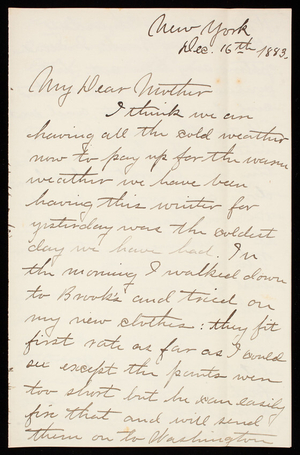 New York
Dec. 16th 1883.
My Dear Mother
I think we are
having all the cold weather
now to pay up for the warm
weather we have been
having this winter for
yesterday was the coldest
day we have had. In
the morning I walked down
to Brook's and tried on
my new clothes: they fit
first rate as far as I could
see except the pants were
too short but he can easily
fix that and will send
them on to Washington